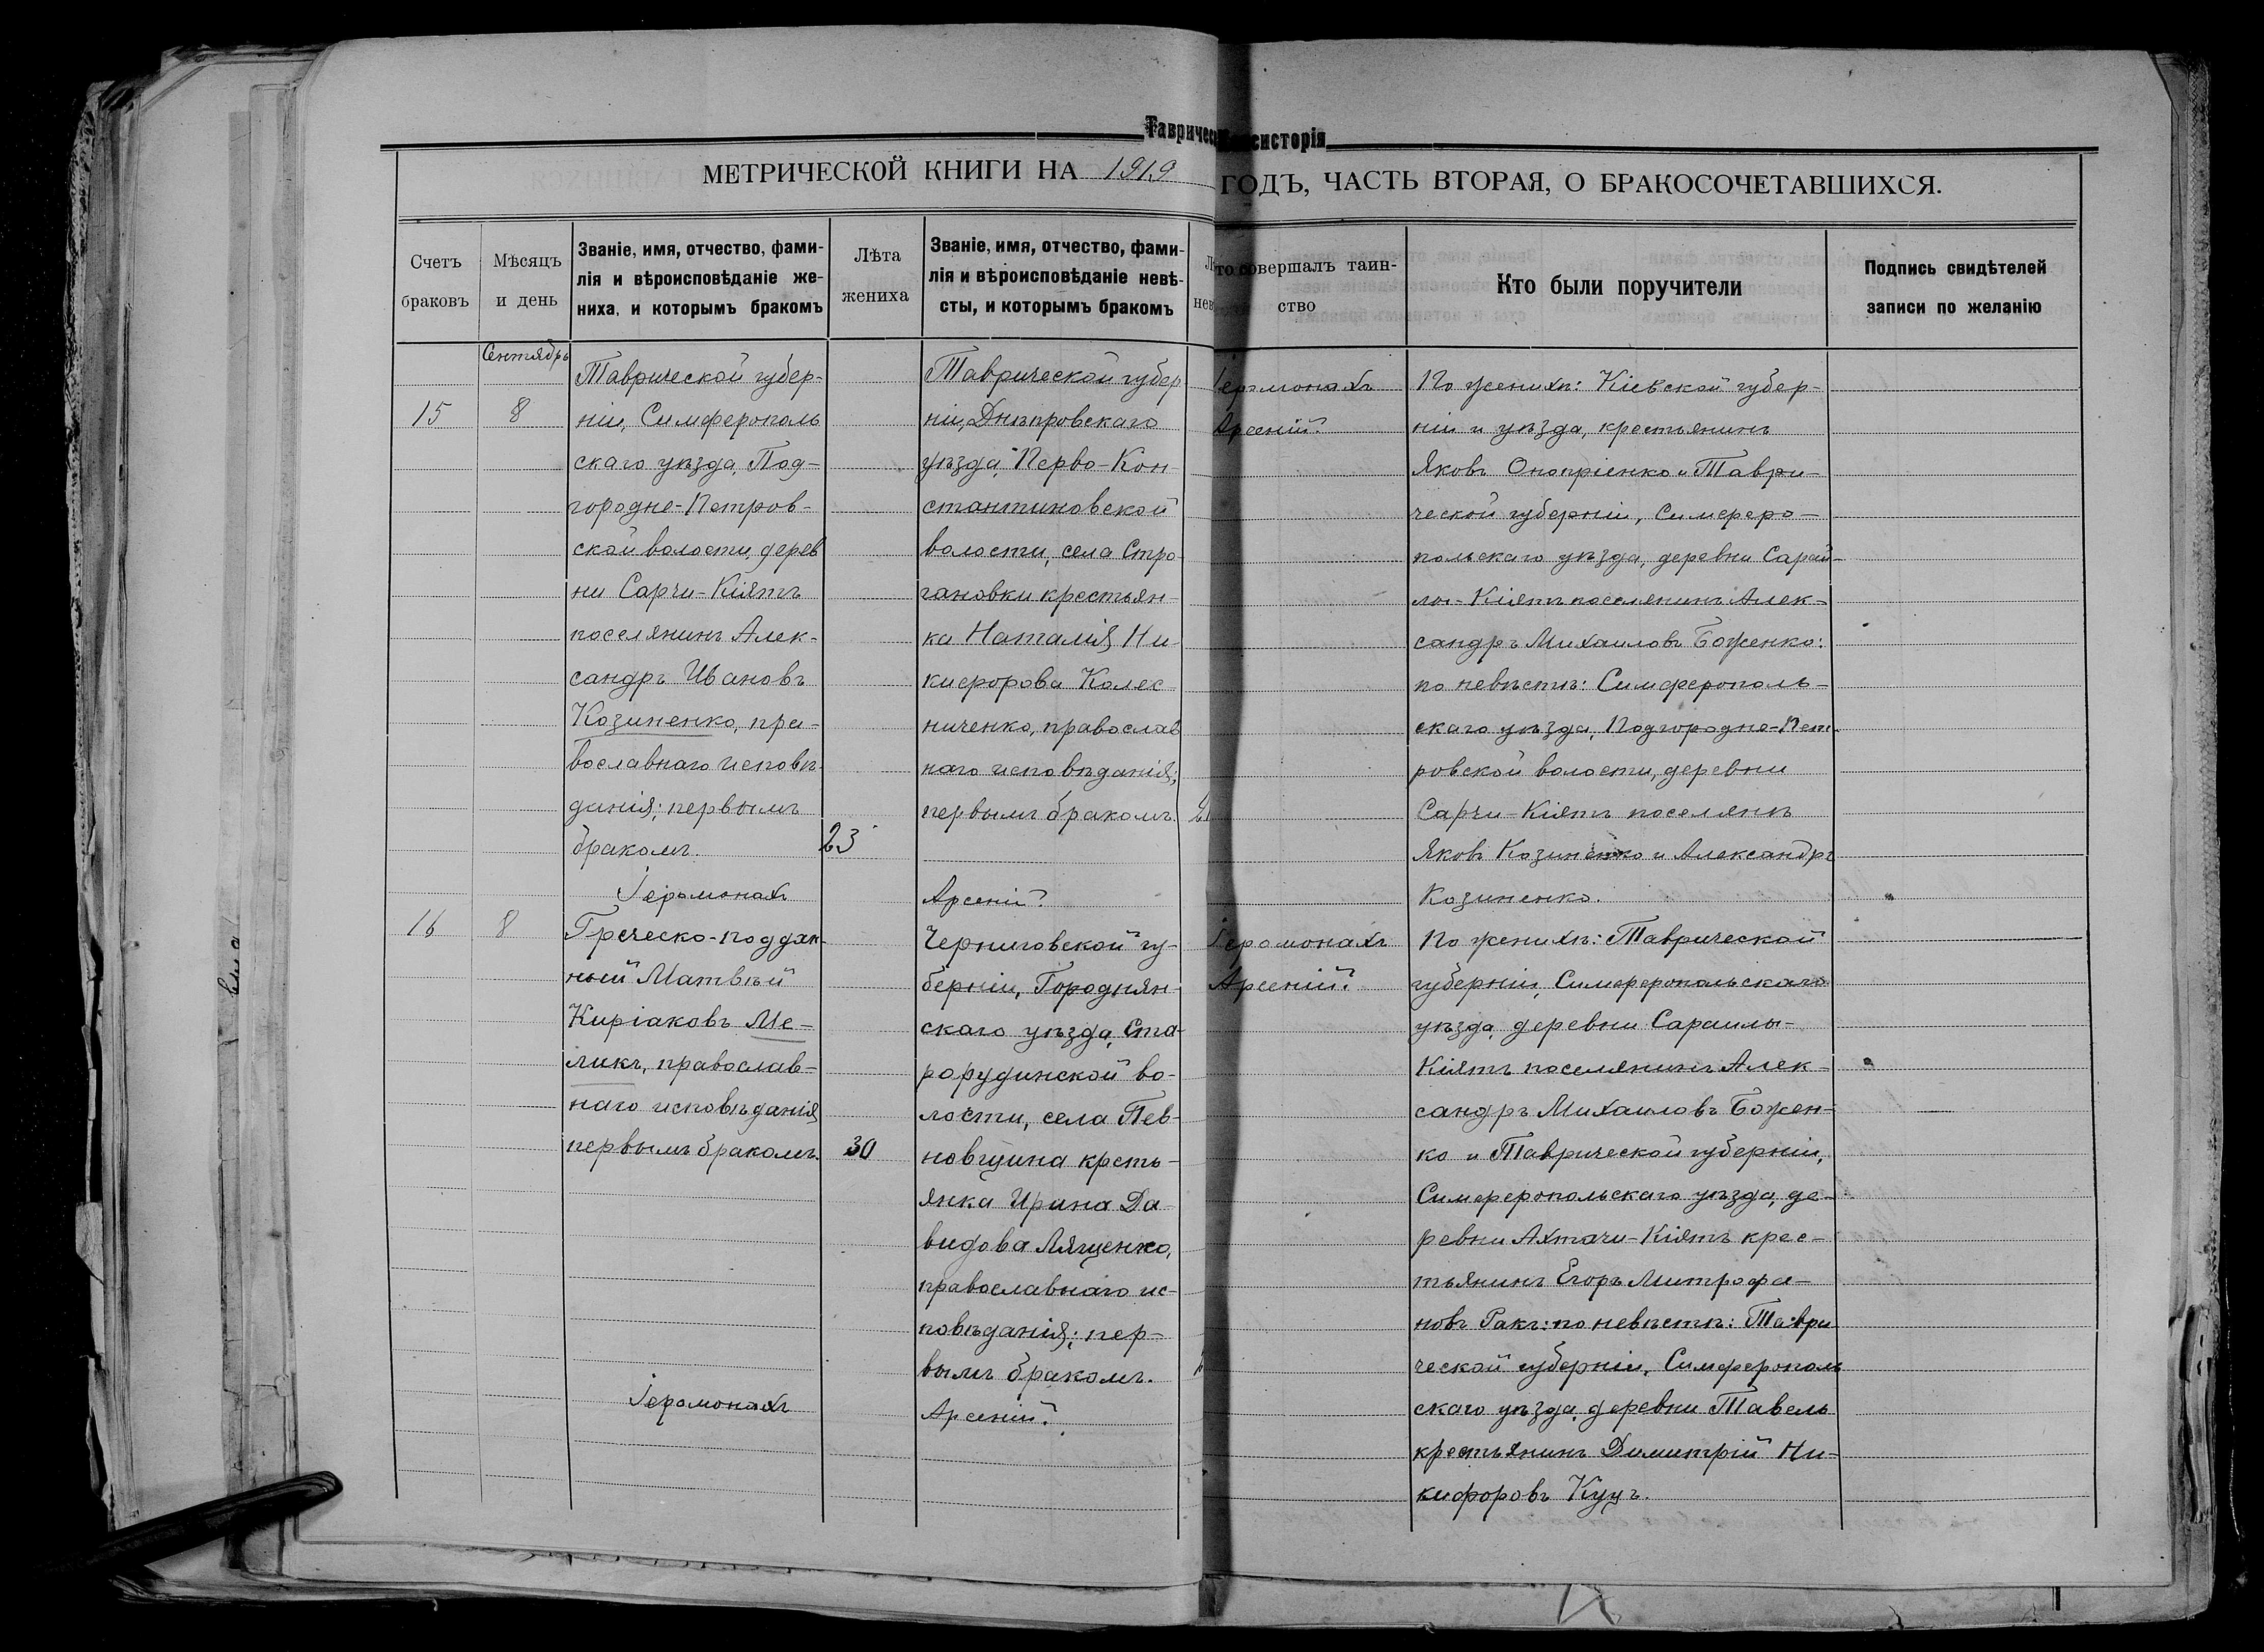 Таврическ консисторія
МЕТРИЧЕСКОЙ КНИГИ НА 1919 ГОДЪ, ЧАСТЬ ВТОРАЯ, О БРАКОСОЧЕТАВШИХСЯ.
Счетъ
браковъ
Мѣсяцъ
и день
Званіе, имя, отчество, фами-
лія и вѣроисповѣданіе же-
ниха, и которымъ бракомъ
Лѣта
жениха
Званіе, имя, отчество, фами-
лія и вѣроисповѣданіе невѣ-
сты, и которымъ бракомъ
то совершалъ таин-
ство
Кто были поручители
Подпись свидѣтелей
записи по желанію
Сентябрь
15
8
Таврической губер-
ніи, Симферополь
скаго уѣзда, Под-
городне-Петров-
ской волости, дерев
ни Сарчи-Кіятъ
поселянинъ Алек-
сандръ Ивановъ
Козиненко, пра-
вославнаго исповѣ-
данія; первымъ
бракомъ.
23
Таврической губер
ніи, Днѣпровскаго
уѣзда, Перво-Кон-
стантиновской
волости, села Стро-
гановки крестьян-
ка Наталія Ни-
кифорова Колес-
ниченко, православ
наго исповѣданія;
первымъ бракомъ.
21
Іеромонахъ
Арсеній.
Іеромонахъ
Арсеній.
По женихѣ: Кіевской губер-
ніи и уѣзда, крестьянинъ
Яковъ Оноприенко и Таври-
ческой губерніи, Симферо-
польскаго уѣзда, деревни Сарай-
лы-Кіятъ поселянинъ Алек-
сандръ Михаиловъ Боженко:
по невѣстѣ: Симферополь-
скаго уѣзда, Подгородне-Пет-
ровской волости, деревни
Сарчи-Кіятъ поселяне
Яковъ Козиненко и Александръ
Козиненко.
16
8
Греческо-поддан-
ный Матвѣй
Киріаковъ Ме-
ликъ, православ-
наго исповѣданія
первымъ бракомъ.
30
Черниговской гу-
берніи, Городнян-
скаго уѣзда, Ста-
рорудинской во-
лости, села Пев-
новщина кресть-
янка Ирина Да-
видова Лященко,
православнаго ис-
повѣданія; пер-
вымъ бракомъ.
Іеромонахъ
Арсеній.
Іеромонахъ
Арсеній.
По женихѣ: Таврической
губерніи, Симферопольскаго
уѣзда, деревни Сараилы-
Кіятъ поселянинъ Алек-
сандръ Михаиловъ Божен-
ко и Таврической губерніи,
Симферопольскаго уѣзда, де-
ревни Ахтачи-Кіятъ крес-
тьянинъ Егоръ Митрофа-
новъ Гакъ: по невѣстѣ: Таври
ческой губерніи, Симферополь
скаго уѣзда, деревни Тавель
крестьянинъ Димитрій Ни-
кифоровъ Куцъ.